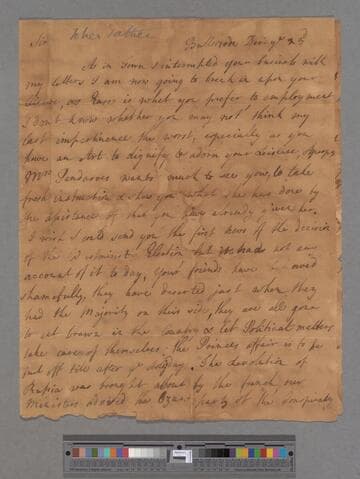 Sir
to her father
Bullstrode Decr ye 25
As in town I interrupted your business with
my letters I am now going to break in upon your
Leisure, as Ease is what you prefer to employment
I don't know whether you may not think my
last impertinence the worst, especially as you
have an Art to dignify & adorn your Leisure,
Mrs Pendarves wants much to see you, to take
fresh instruction & show you what she has done by
the assistance of what you have already given her.
I wish I could send you the first news of the decision
of the Westminster Election but we had not any
account of it to day, your friends have
shamefully, they have deserted just when they
had the Majority on their side, they are all gone
to eat Brawn in the Country & let Political matters
take care of themselves. The Princes affair is to be
put off till after ye holyday. The devolution of
Russia was brought about by the french
Ministers advised the Czars party of the conspiracy